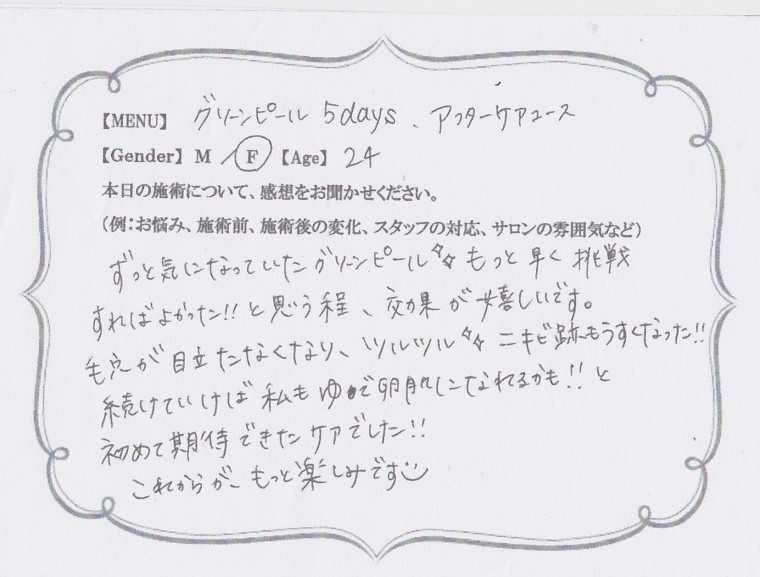 【MENU】 グリーンピール 5days、アフターケアコース
【Gender】 M / F 【Age】 24
本日の施術について、感想をお聞かせください。
（例：お悩み、施術前、施術後の変化、スタッフの対応、サロンの雰囲気など）
ずっと気になっていたグリーンピール✧✧ もっと早く挑戦
すればよかった!! と思う程、効果が嬉しいです。
毛穴が目立たなくなり、ツルツル✧✧ ニキビ跡もうすくなった!!
続けていけば私もゆで卵肌になれるかも!! と
初めて期待できたケアでした!!
これからが、もっと楽しみです☺